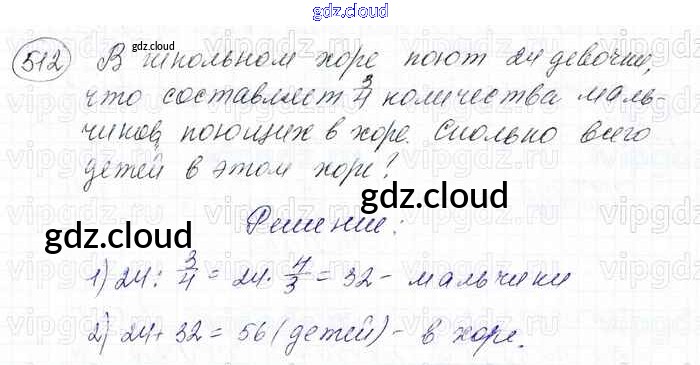 gdz.cloud
512 В школьном хоре поют 24 девочки,
gdz.cloud
что составляет 3/4 количества маль-
чиков, поющих в хоре. Сколько всего
детей в этом хоре?
gdz.cloud
Решение:
gdz.cloud
1) 24 : 3/4 = 24 · 4/3 = 32 - мальчики
2) 24 + 32 = 56 (детей) - в хоре.